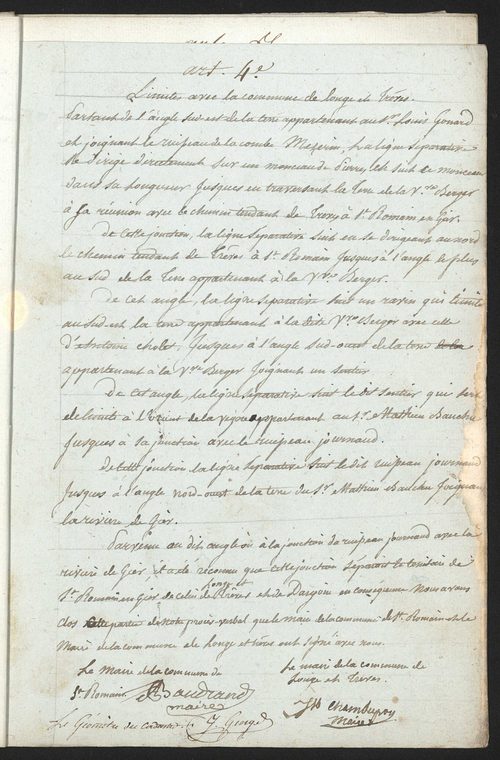 art. 4e
Limites avec la commune de Longe et Trêves.
Partant de l'angle sud-est de la terre appartenant au Sr. Louis Gonard
et joignant le ruisseau de la combe, la ligne séparative
se dirige directement sur un monceau de pierre, et suit ce monceau
dans sa longueur jusques en traversant la terre de la Vve Berger
à sa réunion avec le chemin tendant de Trèves à St. Romain en Gier.
De cette jonction, la ligne séparative suit en se dirigeant au nord
le chemin tendant de Trêves à St. Romain jusques à l'angle le plus
au sud de la terre appartenant à la Vve Berger.
De cet angle, la ligne séparative suit un ravin qui limite
au sud-est la terre appartenant à la dite Vve Berger avec celle
d'Antoine Cholet, jusques à l'angle sud-ouest de la terre
appartenant à la Vve Berger joignant un sentier.
De cet angle, la ligne séparative suit le dit sentier qui sert
de limite à l'Orient de la vigne appartenant au Sr. Mathieu Bauchu
jusques à sa jonction avec le ruisseau journaud.
de cette jonction la ligne séparative suit le dit ruisseau journaud
jusques à l'angle nord-ouest de la terre du Sr. Mathieu Bauchu joignant
la rivière de Gier.
Parvenu au dit angle où à la jonction du ruisseau journaud avec la
rivière de Gier, il a été reconnu que cette jonction séparait le territoire de
St. Romain en Gier de celui de Longe et Trêves et de Dargoire en conséquence nous avons
clos cette partie de notre procès-verbal que le maire de la commune de St. Romain et le
Maire de la commune de Longe et Trêves ont signé avec nous.
Le Maire de la commune de
St. Romain
Baudrand
maire
Le maire de la commune de
Longe et Trêves.
Chambeyron
Maire
Le Géomètre du cadastre